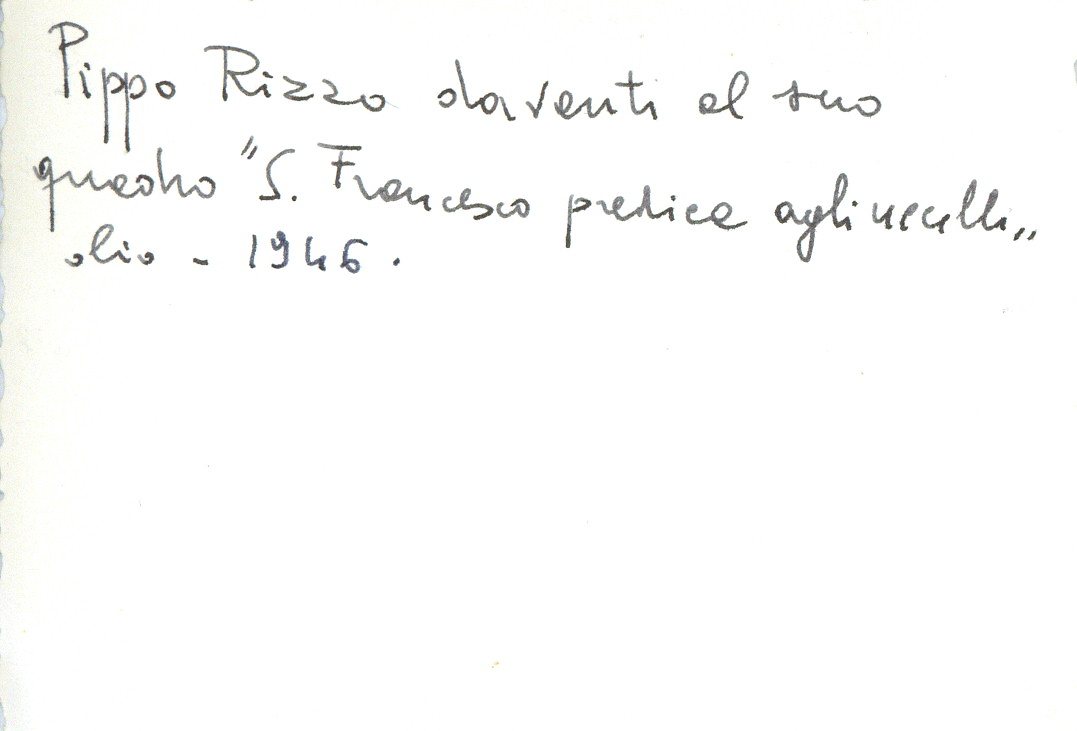 Pippo Rizzo davanti al suo
quadro "S. Francesco predica agli uccelli„
olio - 1946.